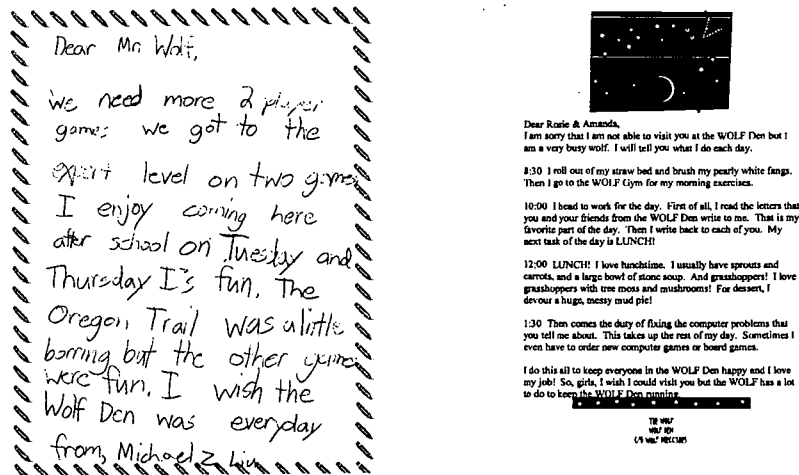 Dear Mr. Wolf,
we need more 2 player
games we got to the
expert level on two games
I enjoy coming here
after school on Tuesday and
Thursday I's fun. The
Oregon Trail was a little
borring but the other games
were fun. I wish the
Wolf Den was everyday
from, Michael Z. Liu
Dear Rosie & Amanda,
I am sorry that I am not able to visit you at the WOLF Den but I
am a very busy wolf. I will tell you what I do each day.
8:30 I roll out of my straw bed and brush my pearly white fangs.
Then I go to the WOLF Gym for my morning exercises.
10:00 I head to work for the day. First of all, I read the letters that
you and your friends from the WOLF Den write to me. That is my
favorite part of the day. Then I write back to each of you. My
next task of the day is LUNCH!
12:00 LUNCH! I love lunchtime. I usually have sprouts and
carrots, and a large bowl of stone soup. And grasshoppers! I love
grasshoppers with tree moss and mushrooms! For dessert, I
devour a huge, messy mud pie!
1:30 Then comes the duty of fixing the computer problems that
you tell me about. This takes up the rest of my day. Sometimes I
even have to order new computer games or board games.
I do this all to keep everyone in the WOLF Den happy and I love
my job! So, girls, I wish I could visit you but the WOLF has a lot
to do to keep the WOLF Den running.
THE WOLF
WOLF DEN